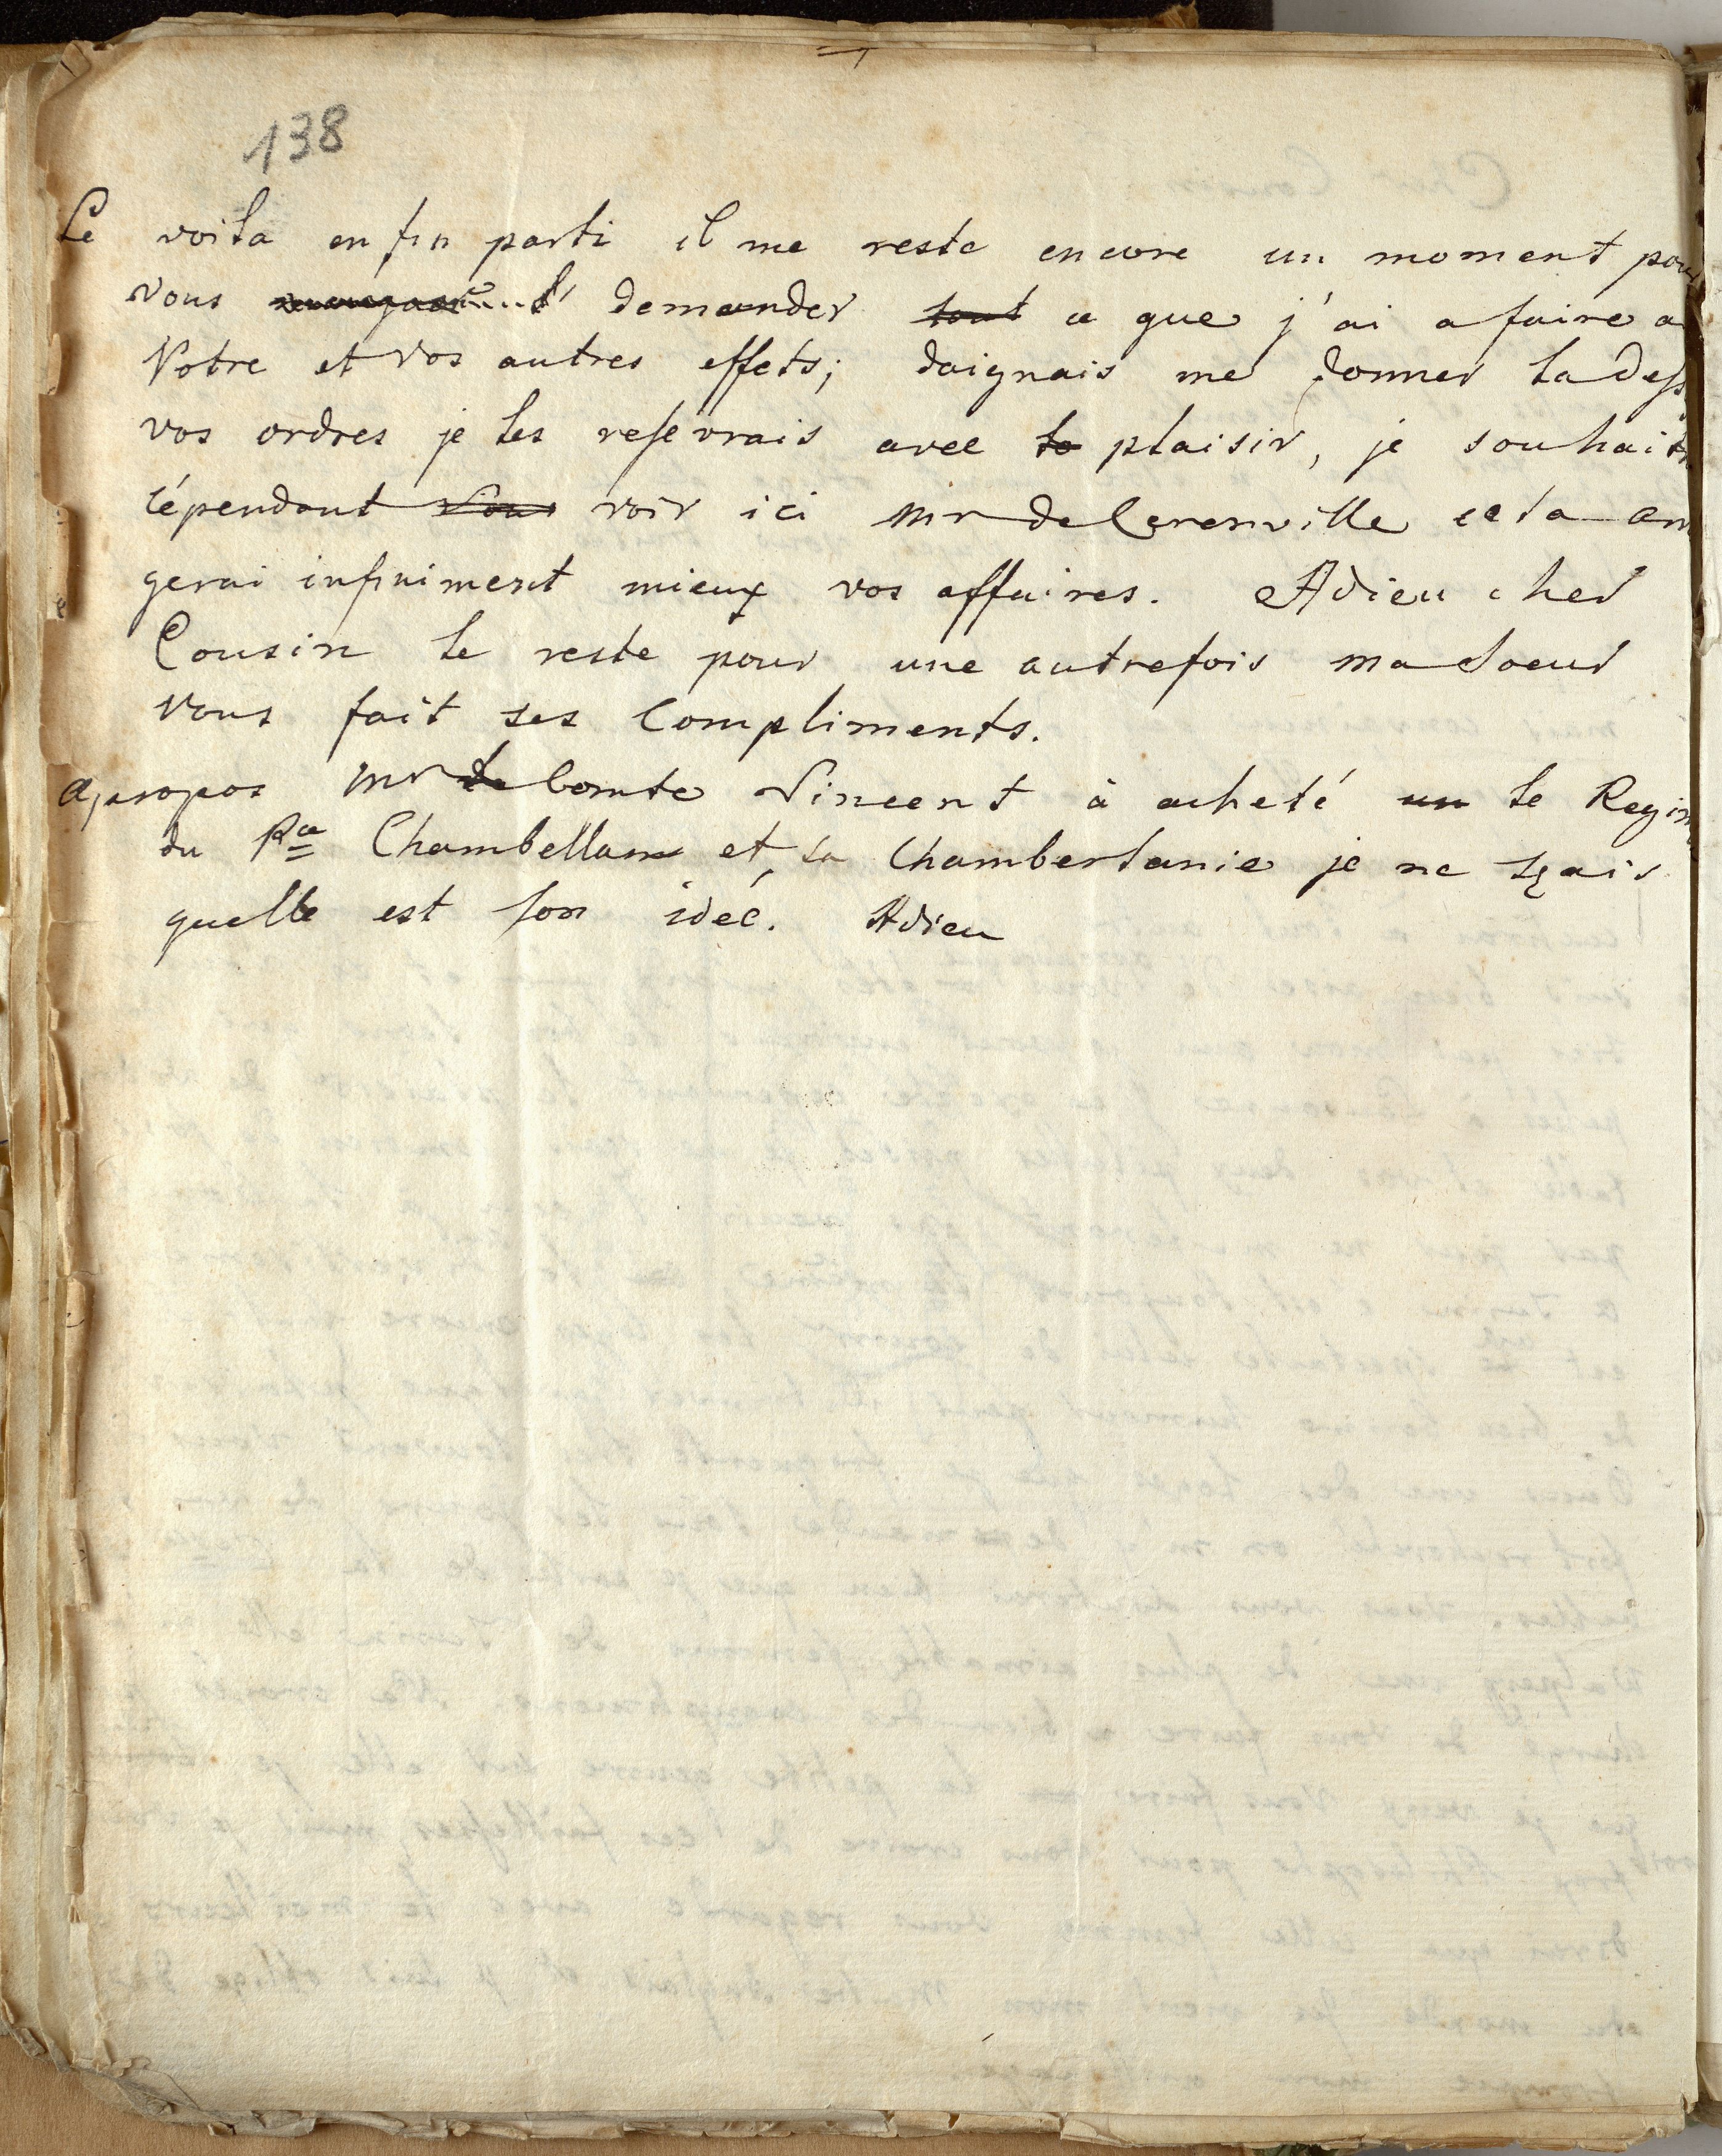 138
Le voila enfin parti il me reste encore un moment pour
vous demander tout ce que j'ai a faire a
Votre et vos autres effets; daignais me donner la dess
vos ordres je les resevrais avec le plaisir, je souhait
cépendant vous voir ici Mr de Cerenville cela arn
gerai infiniment mieux vos affaires. Adieu cher
Cousin le reste pour une autrefois ma soeur
vous fait ses Compliments.
Apropos Mr de Comte Vincent à acheté un le Regim
du Chambellan et sa Chamberlanie je ne sçais
quelle est son idée. Adieu